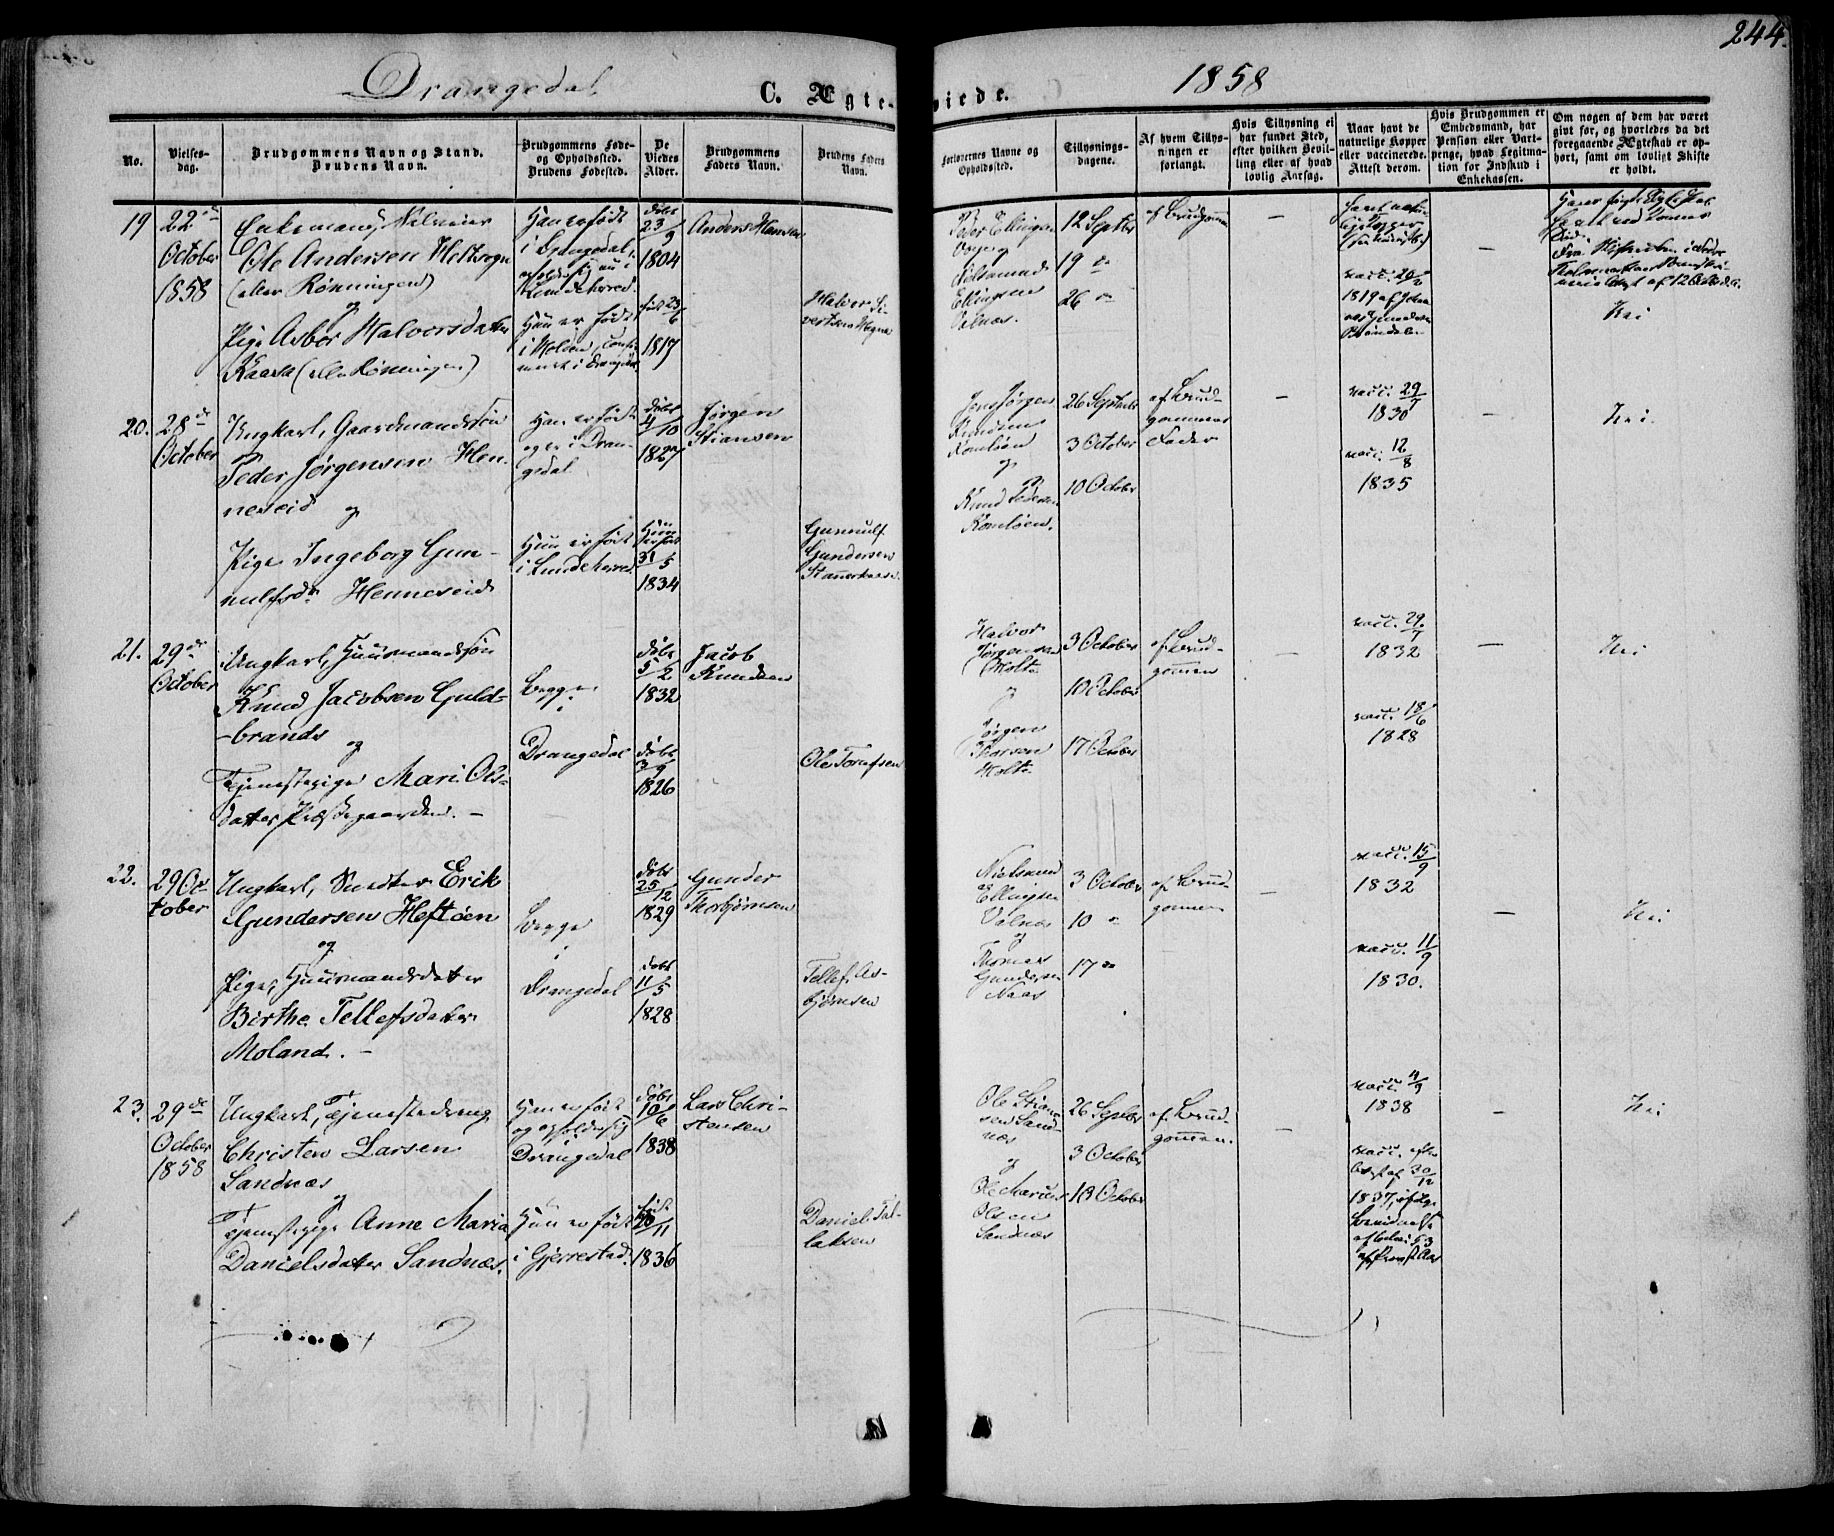 244.
Drangedal
C. Ægte-
viede.
1858
No.
Vielses-
dag.
Brudgommens Navn og Stand.
Brudens Navn.
Brudgommens Føde-
og Opholdssted.
Brudens Fødested.
De
Viedes
Alder.
Brudgommens
Faders Navn.
Brudens Faders
Navn.
Forlovernes Navne og
Opholdssted.
Tillysnings-
dagene.
Af hvem Tillys-
ningen er
forlangt.
Hvis Tillysning ei
har fundet Sted,
efter hvilken Bevil-
ling eller af hvad
lovlig Aarsag.
Naar havt de
naturlige Kopper
eller vaccinerede.
Attest derom.
Hvis Brudgommen er
Embedsmand, har
Pension eller Vart-
penge, hvad Legitima-
tion for Indskud i
Enkekassen.
Om nogen af dem har været
givt før, og hvorledes da det
foregaaende Ægteskab er op-
hørt, samt om lovligt Skifte
er holdt.
19
22de
October
1858
Enkemand,
Ole Andersen
(eller Rønningen)
og
Pige Asbør Halvorsdatter
Kaasa (eller Rønningen)
Han er født
i Drangedal,
Hun er født
i
døbt
23/9
1804
født 23/6
1817
Anders Hansen
Halvor
Peder Ellingsen
Ellingsen
12 Septbr
19 "
26 "
af Brudgommen
-
vacc. 20/2
1819 af
-
Nei
20.
28de
October
Ungkarl, Gaardmandssøn
Peder Jørgensen Hen-
neseid og
Pige Ingeborg Gun-
nulfsdr Henneseid
Han er født
og er i Dran-
gedal
Hun er født
i Lundeherred
døbt
4/10
1827
31/5
1834
Jørgen
Stiansen
Gunnulf
Gundersen
Jens Jørgen
Knudsen
og
Knud Pedersen
26 Septbr
3 October
10 October
af Brud-
gommens
Fader
-
vacc. 29/7
1830
vacc. 12/8
1835
-
Nei.
21.
29de
October
Ungkarl, Huusmandssøn
Knud Jacobsen Guld-
brands
og
Tjenestepige Mari Ols-
datter Præstegaarden. -
Begge
i
Drangedal
døbt
5/2
1832
døbt
3/9
1826
Jacob
Knudsen
Ole
Halvor
Jørgensen
Holte
og
Jørgen
Thorsen
Holte
3 October
10 October
17 October
af Brud-
gommen
-
vacc. 29/7
1832
vacc. 18/6
1828
-
Nei
22.
29 Oc-
tober
Ungkarl, Erik
Gundersen Heftøen
og
Pige, Huusmandsdatter
Birthe Tellefsdatter
Moland. -
Begge
i
Drangedal
døbt
25/12
1829
døbt
11/5
1828
Gunder
Thorbjørnsen
Tellef As-
bjørnsen
Ellingsen
og
Thomas
Gundersen
3 October
10 "
17 "
af Brud-
gommen
-
vacc. 15/9
1832
vacc. 11/9
1830.
-
Nei
23.
29de
October
1858
Ungkarl, Tjenestedreng
Christen Larsen
Sandnæs
og
Tjenestepige Anne Maria
Danielsdatter Sandnæs.
Han er født
og opholder sig
Drangedal
Hun er født
i Gjerrestad.
døbt
10/6
1838
født
/11
1836
Lars Chri-
stensen
Daniel Tal-
laksen
Ole Stian-
sen Sand-
næs
og
Ole Marius
Olsen
Sandnæs
26 Septbr
3 October
10 October
af Brud-
gommen.
-
vacc.
1838
vacc. efter
Attest af 30/12
1837,
-
Nei